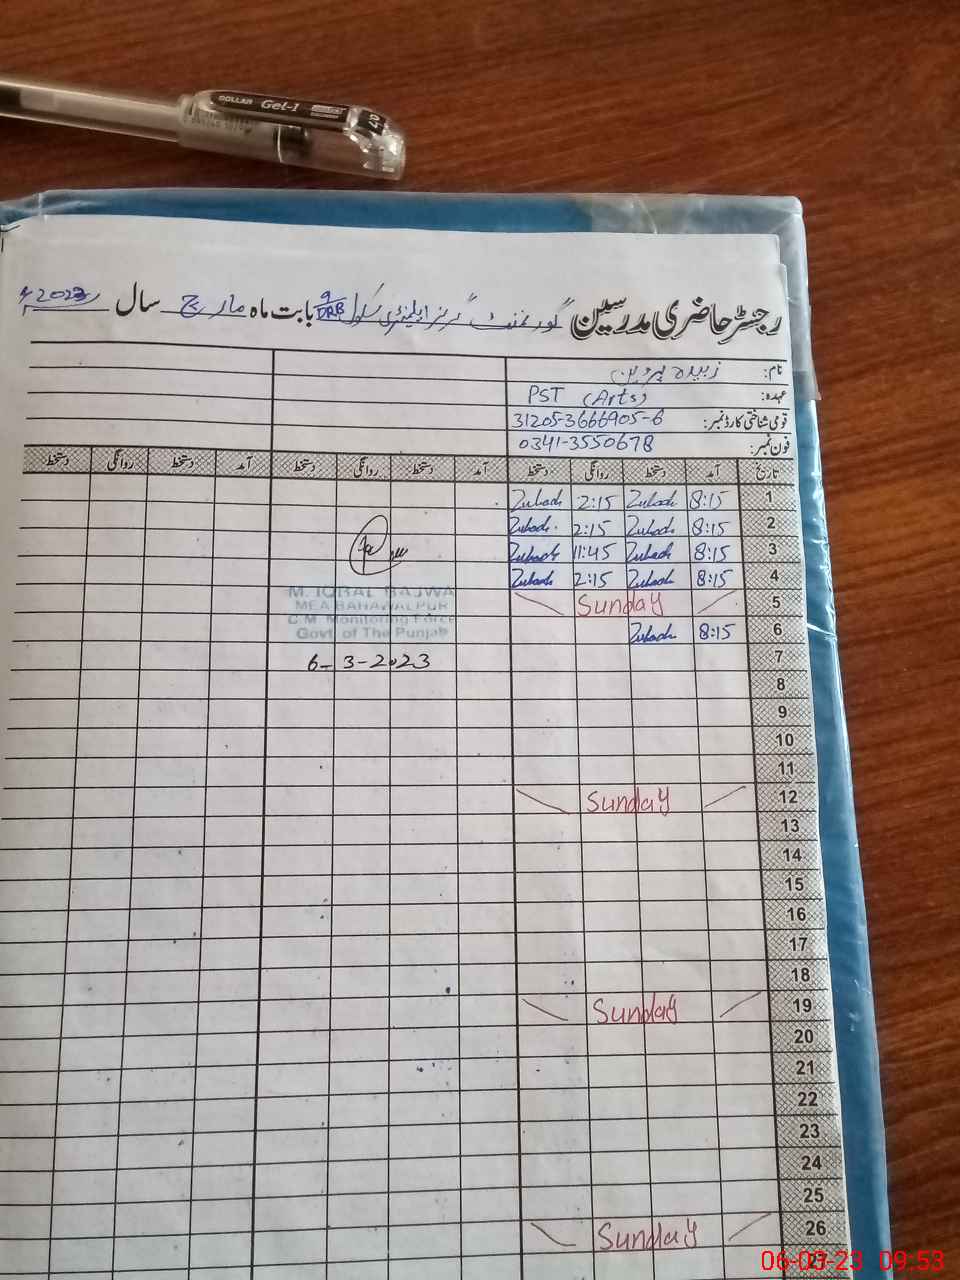 DOLLAR Gel-1
0.7
رجسٹر حاضری مدرسین گورنمنٹ گرلز ایلیمنٹری سکول 9/DRB بابت ماہ مارچ سال 2023ء
نام: زبیدہ پروین
عہدہ: PST (Arts)
قومی شناختی کارڈ نمبر: 31205-3666905-6
فون نمبر: 0341-3550678
تاریخ آمد دستخط روانگی دستخط آمد دستخط روانگی دستخط آمد دستخط روانگی دستخط
1 8:15 Zubada 2:15 Zubada
2 8:15 Zubada 2:15 Zubada
3 8:15 Zubada 11:45 Zubada
4 8:15 Zubada 2:15 Zubada
5 Sunday
6 8:15 Zubada
M. IQBAL BAJWA
MEA BAHAWALPUR
C.M. Monitoring Force
Govt. of The Punjab
6-3-2023
7
8
9
10
11
12 Sunday
13
14
15
16
17
18
19 Sunday
20
21
22
23
24
25
26 Sunday
27
06-03-23 09:53